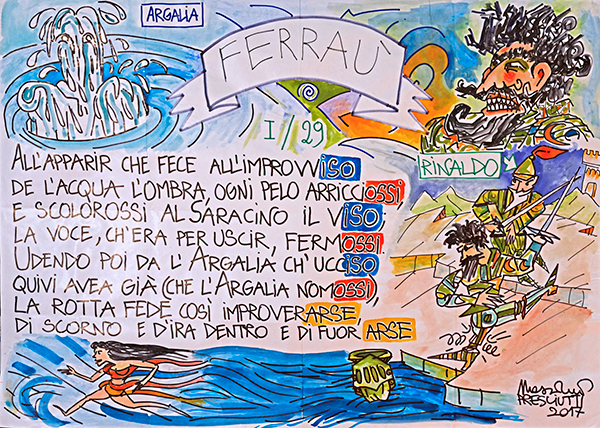 ARGALIA
FERRAÙ
I // 29
RINALDO
ALL'APPARIR CHE FECE ALL'IMPROVVISO
DE L'ACQUA L'OMBRA, OGNI PELO ARRICCIOSSI,
E SCOLOROSSI AL SARACINO IL VISO;
LA VOCE, CH'ERA PER USCIR, FERMOSSI.
UDENDO POI DA L'ARGALIA CH'UCCISO
QUIVI AVEA GIÀ (CHE L'ARGALIA NOMOSSI),
LA ROTTA FEDE COSÌ IMPROVERARSE,
DI SCORNO E D'IRA DENTRO E DI FUOR ARSE
PRESCIUTTI
2017